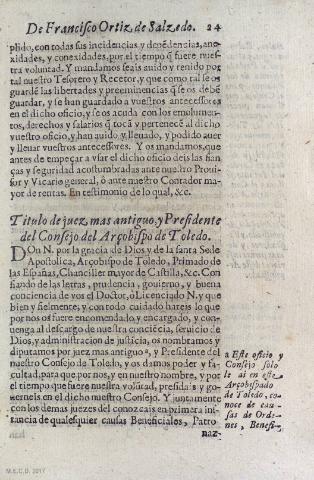 De Francisco Ortiz de Salzedo. 24
plido, con todas sus incidencias y depẽdencias, ane-
xidades, y conexidades, por el tiempo q̃ fuere nues-
tra voluntad. Y mandamos seais auido y tenido por
tal nuestro Tesorero y Recetor, y que como tal se os
guardẽ las libertades y preeminencias q̃ se os debẽ
guardar, y se han guardado a vuestros antecessores
en el dicho oficio, y se os acuda con los emolumen-
tos, derechos y salarios q̃ tocã y pertenecẽ al dicho
vuestro oficio, y han auido y lleuado, y podido auer
y lleuar vuestros antecessores. Y os mandamos, que
antes de empeçar a vsar el dicho oficio deis las fian
ças y seguridad acostumbradas ante nuestro Proui-
sor y Vicario general, ò ante nuestro Contador ma-
yor de rentas. En testimonio de lo qual, &c.
Titulo de juez mas antiguo, y Presidente
del Consejo del Arçobispo de Toledo.
DOn N. por la gracia de Dios y de la santa Sede
Apostolica, Arçobispo de Toledo, Primado de
las Españas, Chanciller mayor de Castilla, &c. Con
fiando de las letras, prudencia, gouierno, y buena
conciencia de vos el Doctor, ò Licenciado N. y que
bien y fielmente, y con todo cuidado hareis lo que
por nos os fuere encomendado y encargado, y con-
uenga al descargo de nuestra conciẽcia, seruicio de
Dios, y administracion de justicia, os nombramos y
diputamos por juez mas antiguo a, y Presidente del
nuestro Consejo de Toledo, y os damos poder y fa-
cultad, para que por nos, y en nuestro nombre, y por
el tiempo que fuere nuestra volũtad, presidais y go-
uerneis en el dicho nuestro Consejo. Y juntamente
con los demas juezes del conozcais en primera ins-
tancia de qualesquier causas Beneficiales, Patro
naz-
a Este oficio y
Consejo solo
le ai en este
Arçobispado
de Toledo, co-
noce de cau-
sas de Orde-
nes, Benefi-
M.E.C.D. 2017